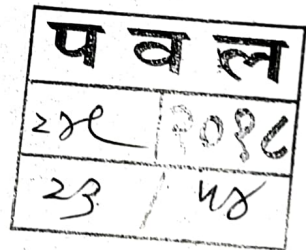 प व ल
२४९ २०१८
२३ / ५४